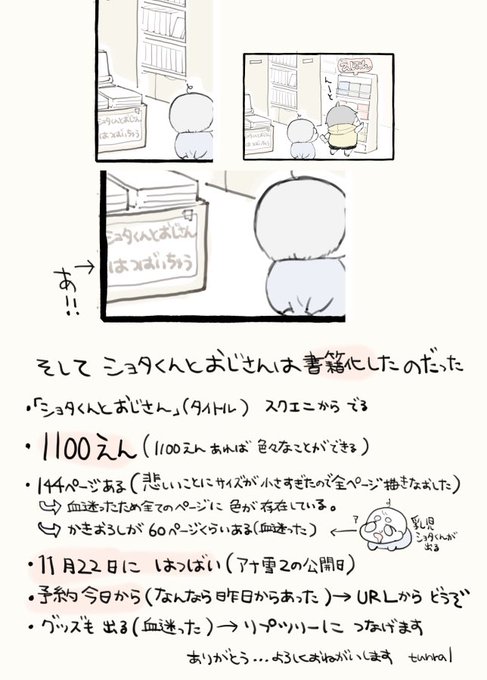 ショタくんとおじさん
はつばいちゅう
んーと
ショタくんとおじさん
はつばいちゅう
あ!!
そして ショタくんとおじさんは 書籍化したのだった
・「ショタくんとおじさん」(タイトル) スクエニから でる
・1100えん(1100えんあれば 色々なことができる)
・144ページある(悲しいことにサイズが小さすぎたので全ページ描きなおした)
↳血迷ったため全てのページに 色が存在している。
↳かきおろしが60ページくらいある(血迷った)
?
乳児
ショタくんが
出る
・11月22日に はつばい(アナ雪2の公開日)
・予約 今日から(なんなら昨日からあった)→URLから どうぞ
・グッズも 出る(血迷った)→リプツリーに つなげます
ありがとう…よろしくおねがいします tunral